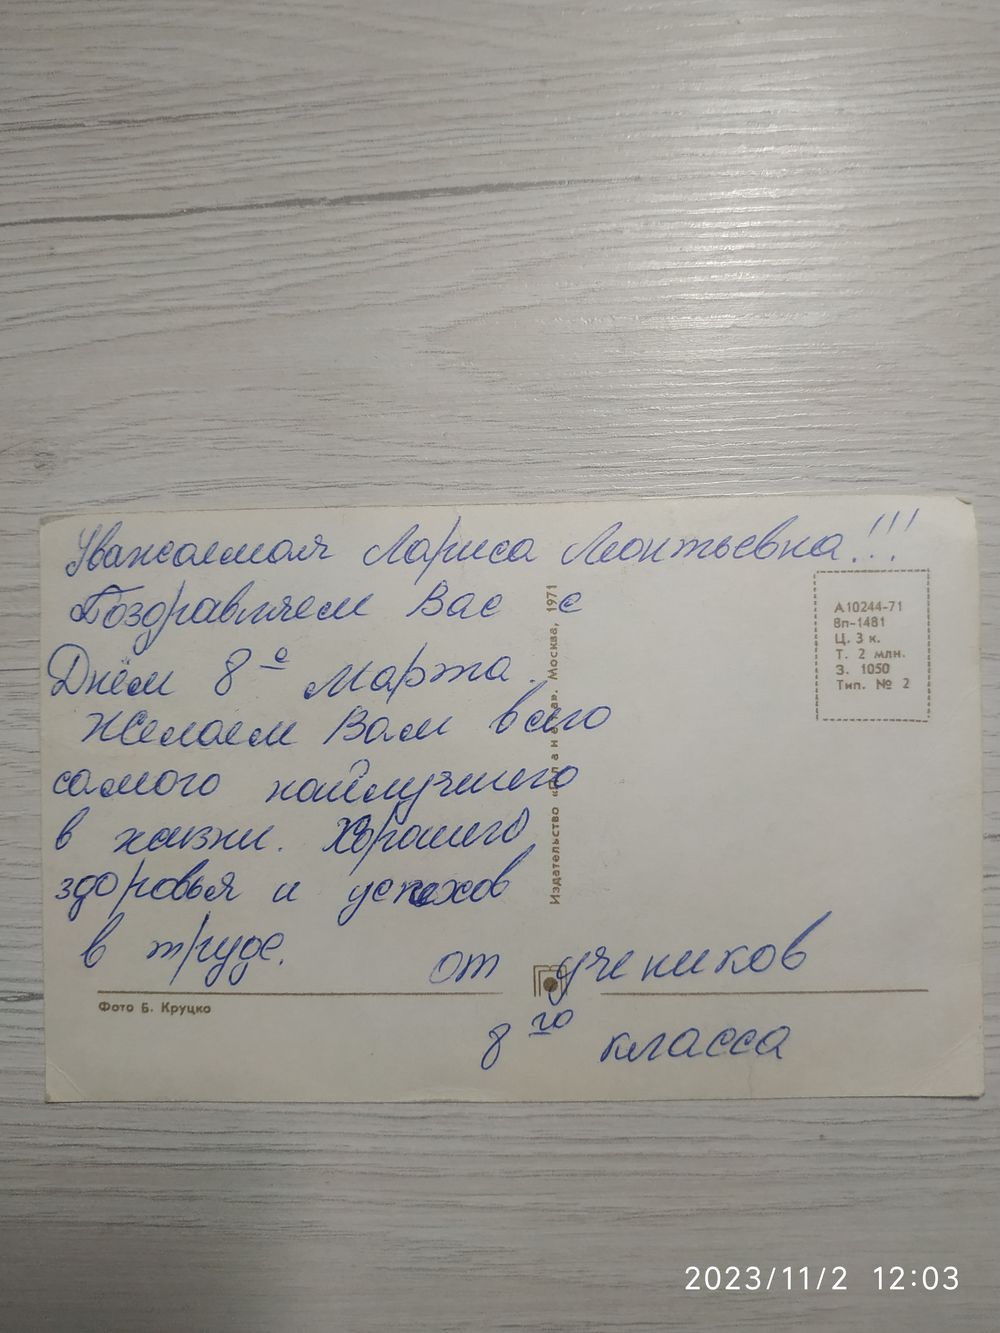 Уважаемая Лариса Леонтьевна!!!
Поздравляем Вас с
Днём 8 е марта.
Желаем Вам всего
самого наилучшего
в жизни. Хорошего
здоровья и успехов
в труде.
от учеников
8 го класса
Издательство «Планета». Москва, 1971
А10244-71
8п-1481
Ц. 3 к.
Т. 2 млн.
З. 1050
Тип. № 2
Фото Б. Круцко
2023/11/2 12:03